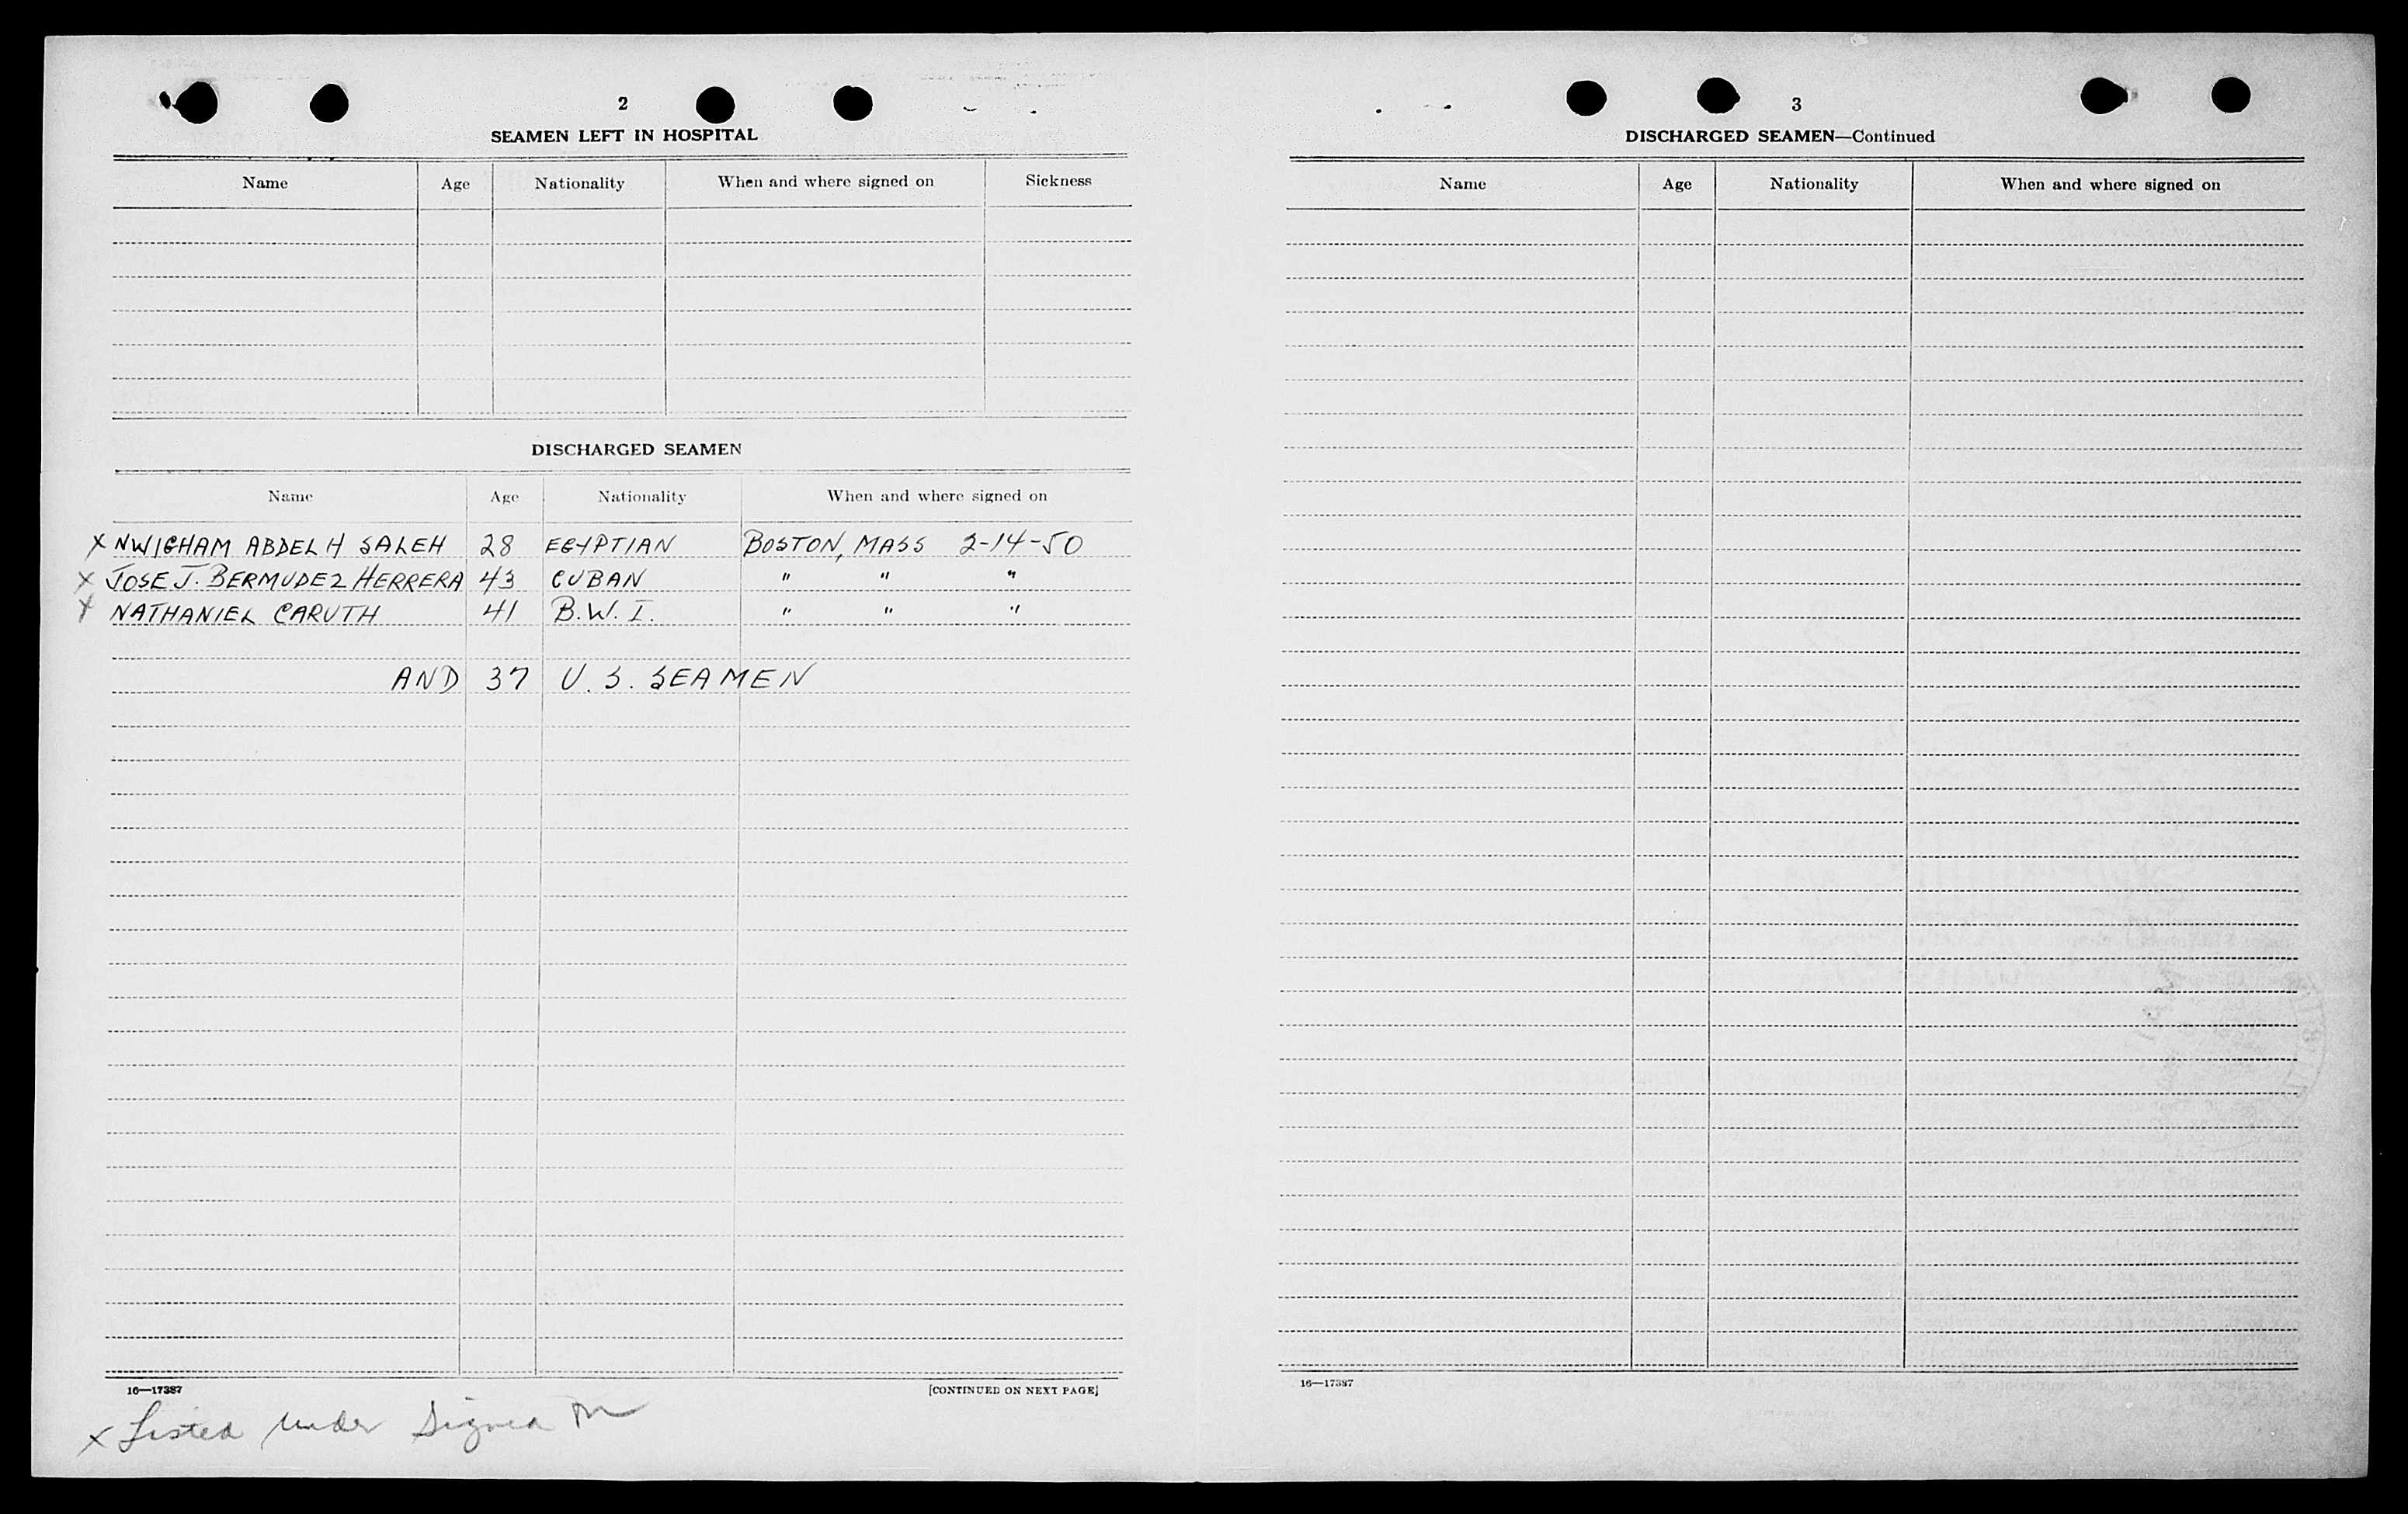 2
SEAMEN LEFT IN HOSPITAL
Name Age Nationality When and where signed on Sickness
DISCHARGED SEAMEN
Name Age Nationality When and where signed on
X NWIGHAM ABDEL H SALEH 28 EGYPTIAN BOSTON, MASS 2-14-50
X JOSE J. BERMUDEZ HERRERA 43 CUBAN " " "
X NATHANIEL CARUTH 41 B.W.I. " " "
AND 37 U.S. SEAMEN
16—17387 [CONTINUED ON NEXT PAGE]
x Listed under Signed on
3
DISCHARGED SEAMEN—Continued
Name Age Nationality When and where signed on
16—17387